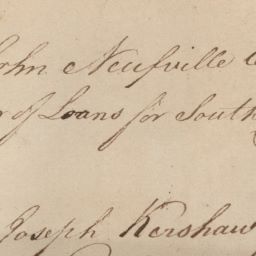 John Neufville
r of Loans for South
Joseph Kershaw